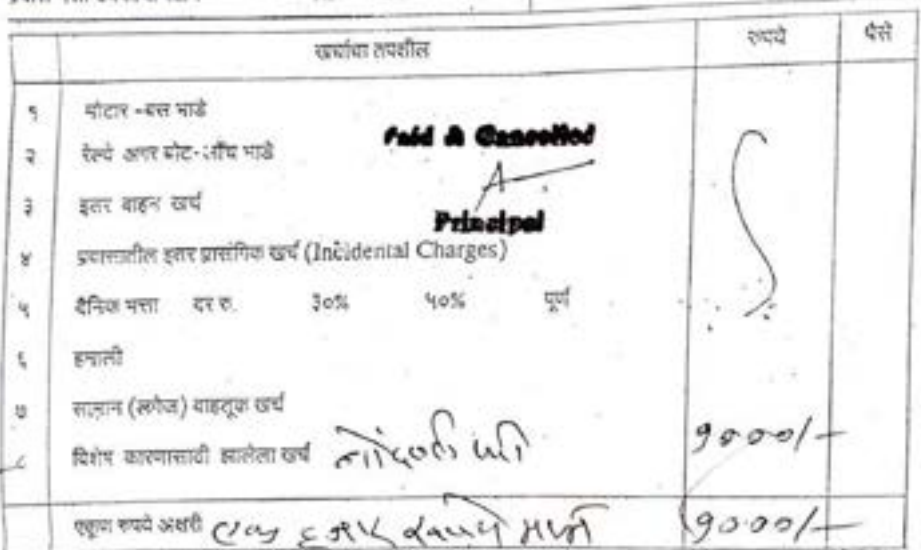 खर्चाचा तपशील रुपये पैसे
१ मोटार -बस भाडे
२ रेल्वे अगर बोट-लाँच भाडे
Paid & Cancelled
३ इतर वाहन खर्च
Principal
४ प्रवासातील इतर प्रासंगिक खर्च (Incidental Charges)
५ दैनिक भत्ता दर रु. ३०% ५०% पूर्ण
६ हमाली
७ सामान (लगेज) वाहतूक खर्च
८ विशेष कारणासाठी झालेला खर्च नोंदणी फी १०००/-
एकूण रुपये अक्षरी एक हजार रुपये मात्र १०००/-